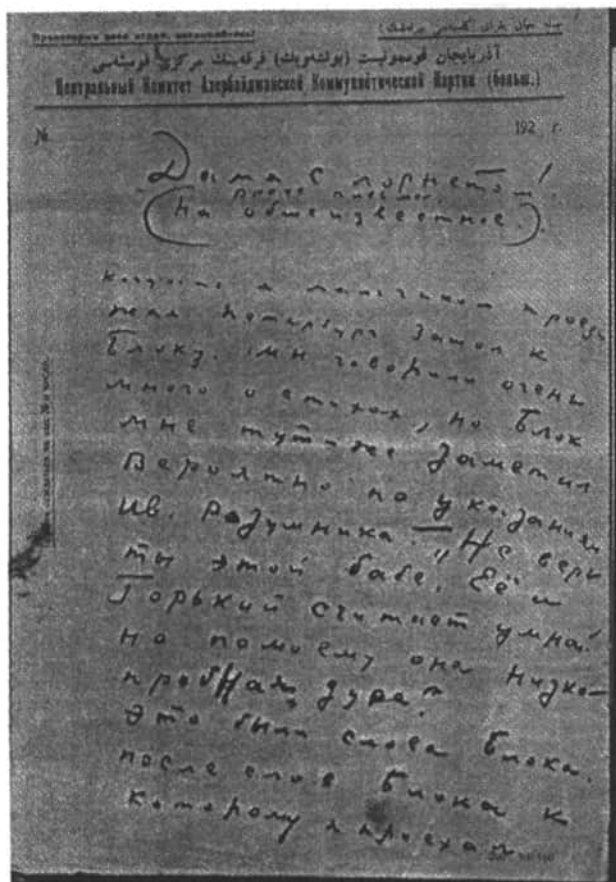 Пролетарии всех стран, соединяйтесь!
آذربايجان قومونيست (بولشهويك) فرقه‌سنك مركزي قوميته‌سي
Центральный Комитет Азербайджанской Коммунистической Партии (больш.)
№ 192 г.
Дама с лорнетом!
(На общеизвестное.)
мальчиком проез
жая Петербург зашол к
Блоку. Мы говорили очень
много о стихах, но Блок
мне тут же заметил
вероятно по указанием
Ив. Разумника. „Не верь
ты этой бабе. Её и
Горький считает умной.
но помоему она низко-
пробная дура"
Это были слова Блока.
после слов Блока к
которому я приехал